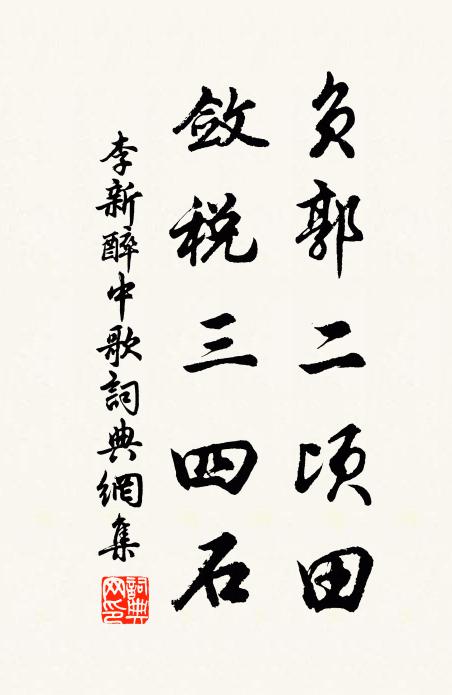 負郭二頃田
斂税三四石
李新醉中歌詞典網集
詞典網印